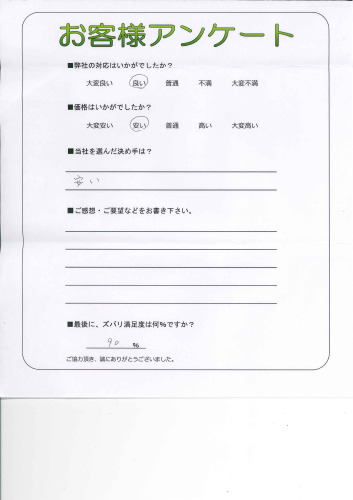 お客様アンケート
■弊社の対応はいかがでしたか?
大変良い 良い 普通 不満 大変不満
■価格はいかがでしたか?
大変安い 安い 普通 高い 大変高い
■当社を選んだ決め手は?
安い
■ご感想・ご要望などをお書き下さい。
■最後に、ズバリ満足度は何%ですか?
90 %
ご協力頂き、誠にありがとうございました。